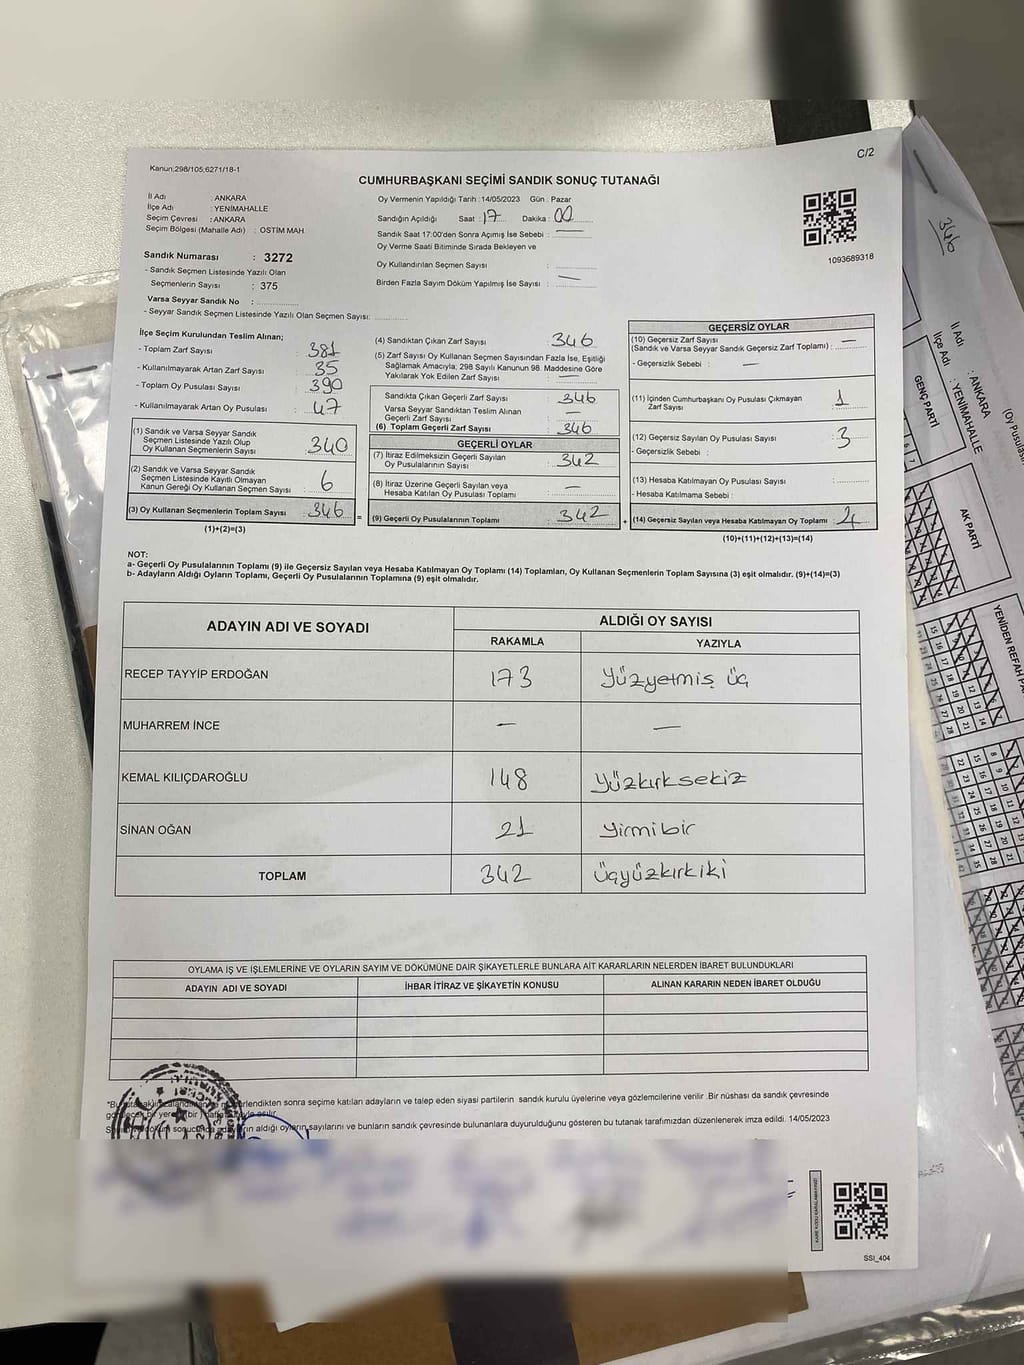 C/2
Kanun:298/105;6271/18-1
CUMHURBAŞKANI SEÇİMİ SANDIK SONUÇ TUTANAĞI
İl Adı : ANKARA
İlçe Adı : YENİMAHALLE
Seçim Çevresi : ANKARA
Seçim Bölgesi (Mahalle Adı) : OSTİM MAH.
Sandık Numarası : 3272
- Sandık Seçmen Listesinde Yazılı Olan
Seçmenlerin Sayısı : 375
Varsa Seyyar Sandık No :
- Seyyar Sandık Seçmen Listesinde Yazılı Olan Seçmen Sayısı:
Oy Vermenin Yapıldığı Tarih : 14/05/2023 Gün : Pazar
Sandığın Açıldığı Saat : 17 Dakika : 00
Sandık Saat 17:00'den Sonra Açımış İse Sebebi : —
Oy Verme Saati Bitiminde Sırada Bekleyen ve
Oy Kullandırılan Seçmen Sayısı :
Birden Fazla Sayım Döküm Yapılmış İse Sayısı : —
1093689318
İlçe Seçim Kurulundan Teslim Alınan;
- Toplam Zarf Sayısı : 381
- Kullanılmayarak Artan Zarf Sayısı : 35
- Toplam Oy Pusulası Sayısı : 390
- Kullanılmayarak Artan Oy Pusulası : 47
(1) Sandık ve Varsa Seyyar Sandık
Seçmen Listesinde Yazılı Olup
Oy Kullanan Seçmenlerin Sayısı : 340
(2) Sandık ve Varsa Seyyar Sandık
Seçmen Listesinde Kayıtlı Olmayan
Kanun Gereği Oy Kullanan Seçmen Sayısı : 6
(3) Oy Kullanan Seçmenlerin Toplam Sayısı : 346
(1)+(2)=(3)
(4) Sandıktan Çıkan Zarf Sayısı : 346
(5) Zarf Sayısı Oy Kullanan Seçmen Sayısından Fazla İse, Eşitliği
Sağlamak Amacıyla; 298 Sayılı Kanunun 98. Maddesine Göre
Yakılarak Yok Edilen Zarf Sayısı : —
Sandıkta Çıkan Geçerli Zarf Sayısı : 346
Varsa Seyyar Sandıktan Teslim Alınan
Geçerli Zarf Sayısı : —
(6) Toplam Geçerli Zarf Sayısı : 346
GEÇERLİ OYLAR
(7) İtiraz Edilmeksizin Geçerli Sayılan
Oy Pusulalarının Sayısı : 342
(8) İtiraz Üzerine Geçerli Sayılan veya
Hesaba Katılan Oy Pusulası Toplamı : —
= (9) Geçerli Oy Pusulalarının Toplamı : 342
GEÇERSİZ OYLAR
(10) Geçersiz Zarf Sayısı
(Sandık ve Varsa Seyyar Sandık Geçersiz Zarf Toplamı) : —
- Geçersizlik Sebebi : —
(11) İçinden Cumhurbaşkanı Oy Pusulası Çıkmayan
Zarf Sayısı : 1
(12) Geçersiz Sayılan Oy Pusulası Sayısı : 3
- Geçersizlik Sebebi :
(13) Hesaba Katılmayan Oy Pusulası Sayısı :
- Hesaba Katılmama Sebebi :
+ (14) Geçersiz Sayılan veya Hesaba Katılmayan Oy Toplamı : 4
(10)+(11)+(12)+(13)=(14)
NOT:
a- Geçerli Oy Pusulalarının Toplamı (9) ile Geçersiz Sayılan veya Hesaba Katılmayan Oy Toplamı (14) Toplamları, Oy Kullanan Seçmenlerin Toplam Sayısına (3) eşit olmalıdır. (9)+(14)=(3)
b- Adayların Aldığı Oyların Toplamı, Geçerli Oy Pusulalarının Toplamına (9) eşit olmalıdır.
ADAYIN ADI VE SOYADI ALDIĞI OY SAYISI
RAKAMLA YAZIYLA
RECEP TAYYİP ERDOĞAN 173 Yüzyetmiş üç
MUHARREM İNCE — —
KEMAL KILIÇDAROĞLU 148 Yüzkırksekiz
SİNAN OĞAN 21 Yirmibir
TOPLAM 342 Üçyüzkırkiki
OYLAMA İŞ VE İŞLEMLERİNE VE OYLARIN SAYIM VE DÖKÜMÜNE DAİR ŞİKAYETLERLE BUNLARA AİT KARARLARIN NELERDEN İBARET BULUNDUKLARI
ADAYIN ADI VE SOYADI İHBAR İTİRAZ VE ŞİKAYETİN KONUSU ALINAN KARARIN NEDEN İBARET OLDUĞU
sonra seçime katılan adayların ve talep eden siyasi partilerin sandık kurulu üyelerine veya gözlemcilerine verilir .Bir nüshası da sandık çevresinde
aldığı oyların sayılarını ve bunların sandık çevresinde bulunanlara duyurulduğunu gösteren bu tutanak tarafımızdan düzenlenerek imza edildi. 14/05/2023
SSI_404
346
İl Adı : ANKARA
İlçe Adı : YENİMAHALLE
GENÇ PARTİ
AK PARTİ
YENİDEN REFAH